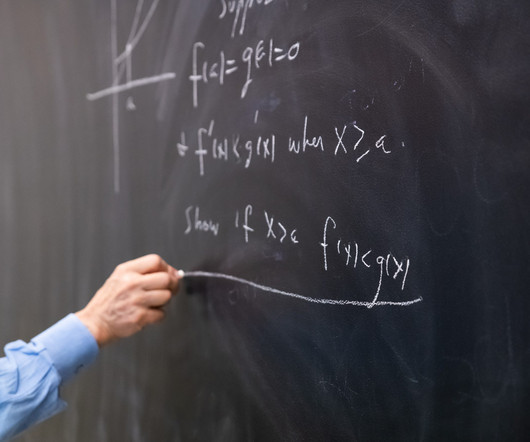 Suppose
a
f(a)=g(a)=0
& f'(x)<g'(x) when x≥a.
Show if x>a f(x)<g(x)